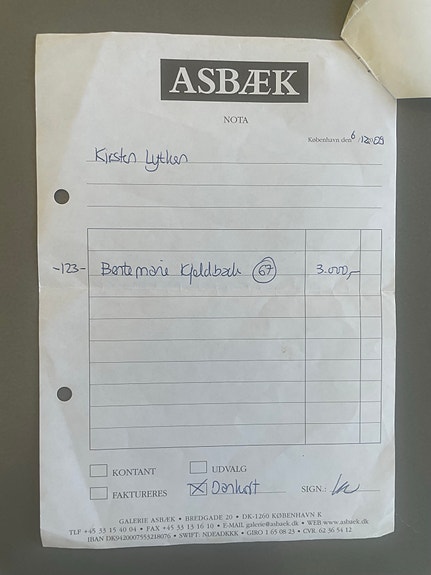 ASBÆK
NOTA
København den 6/12 09
Kirsten Lytken
-123- 67 3.000,-
KONTANT UDVALG
FAKTURERES Dankort SIGN.:
GALERIE ASBÆK • BREDGADE 20 • DK-1260 KØBENHAVN K
TLF +45 33 15 40 04 • FAX +45 33 13 16 10 • E-MAIL galerie@asbaek.dk • WEB www.asbaek.dk
IBAN DK9420007553218076 • SWIFT: NDEADKKK • GIRO 1 65 08 23 • CVR 62 36 54 12